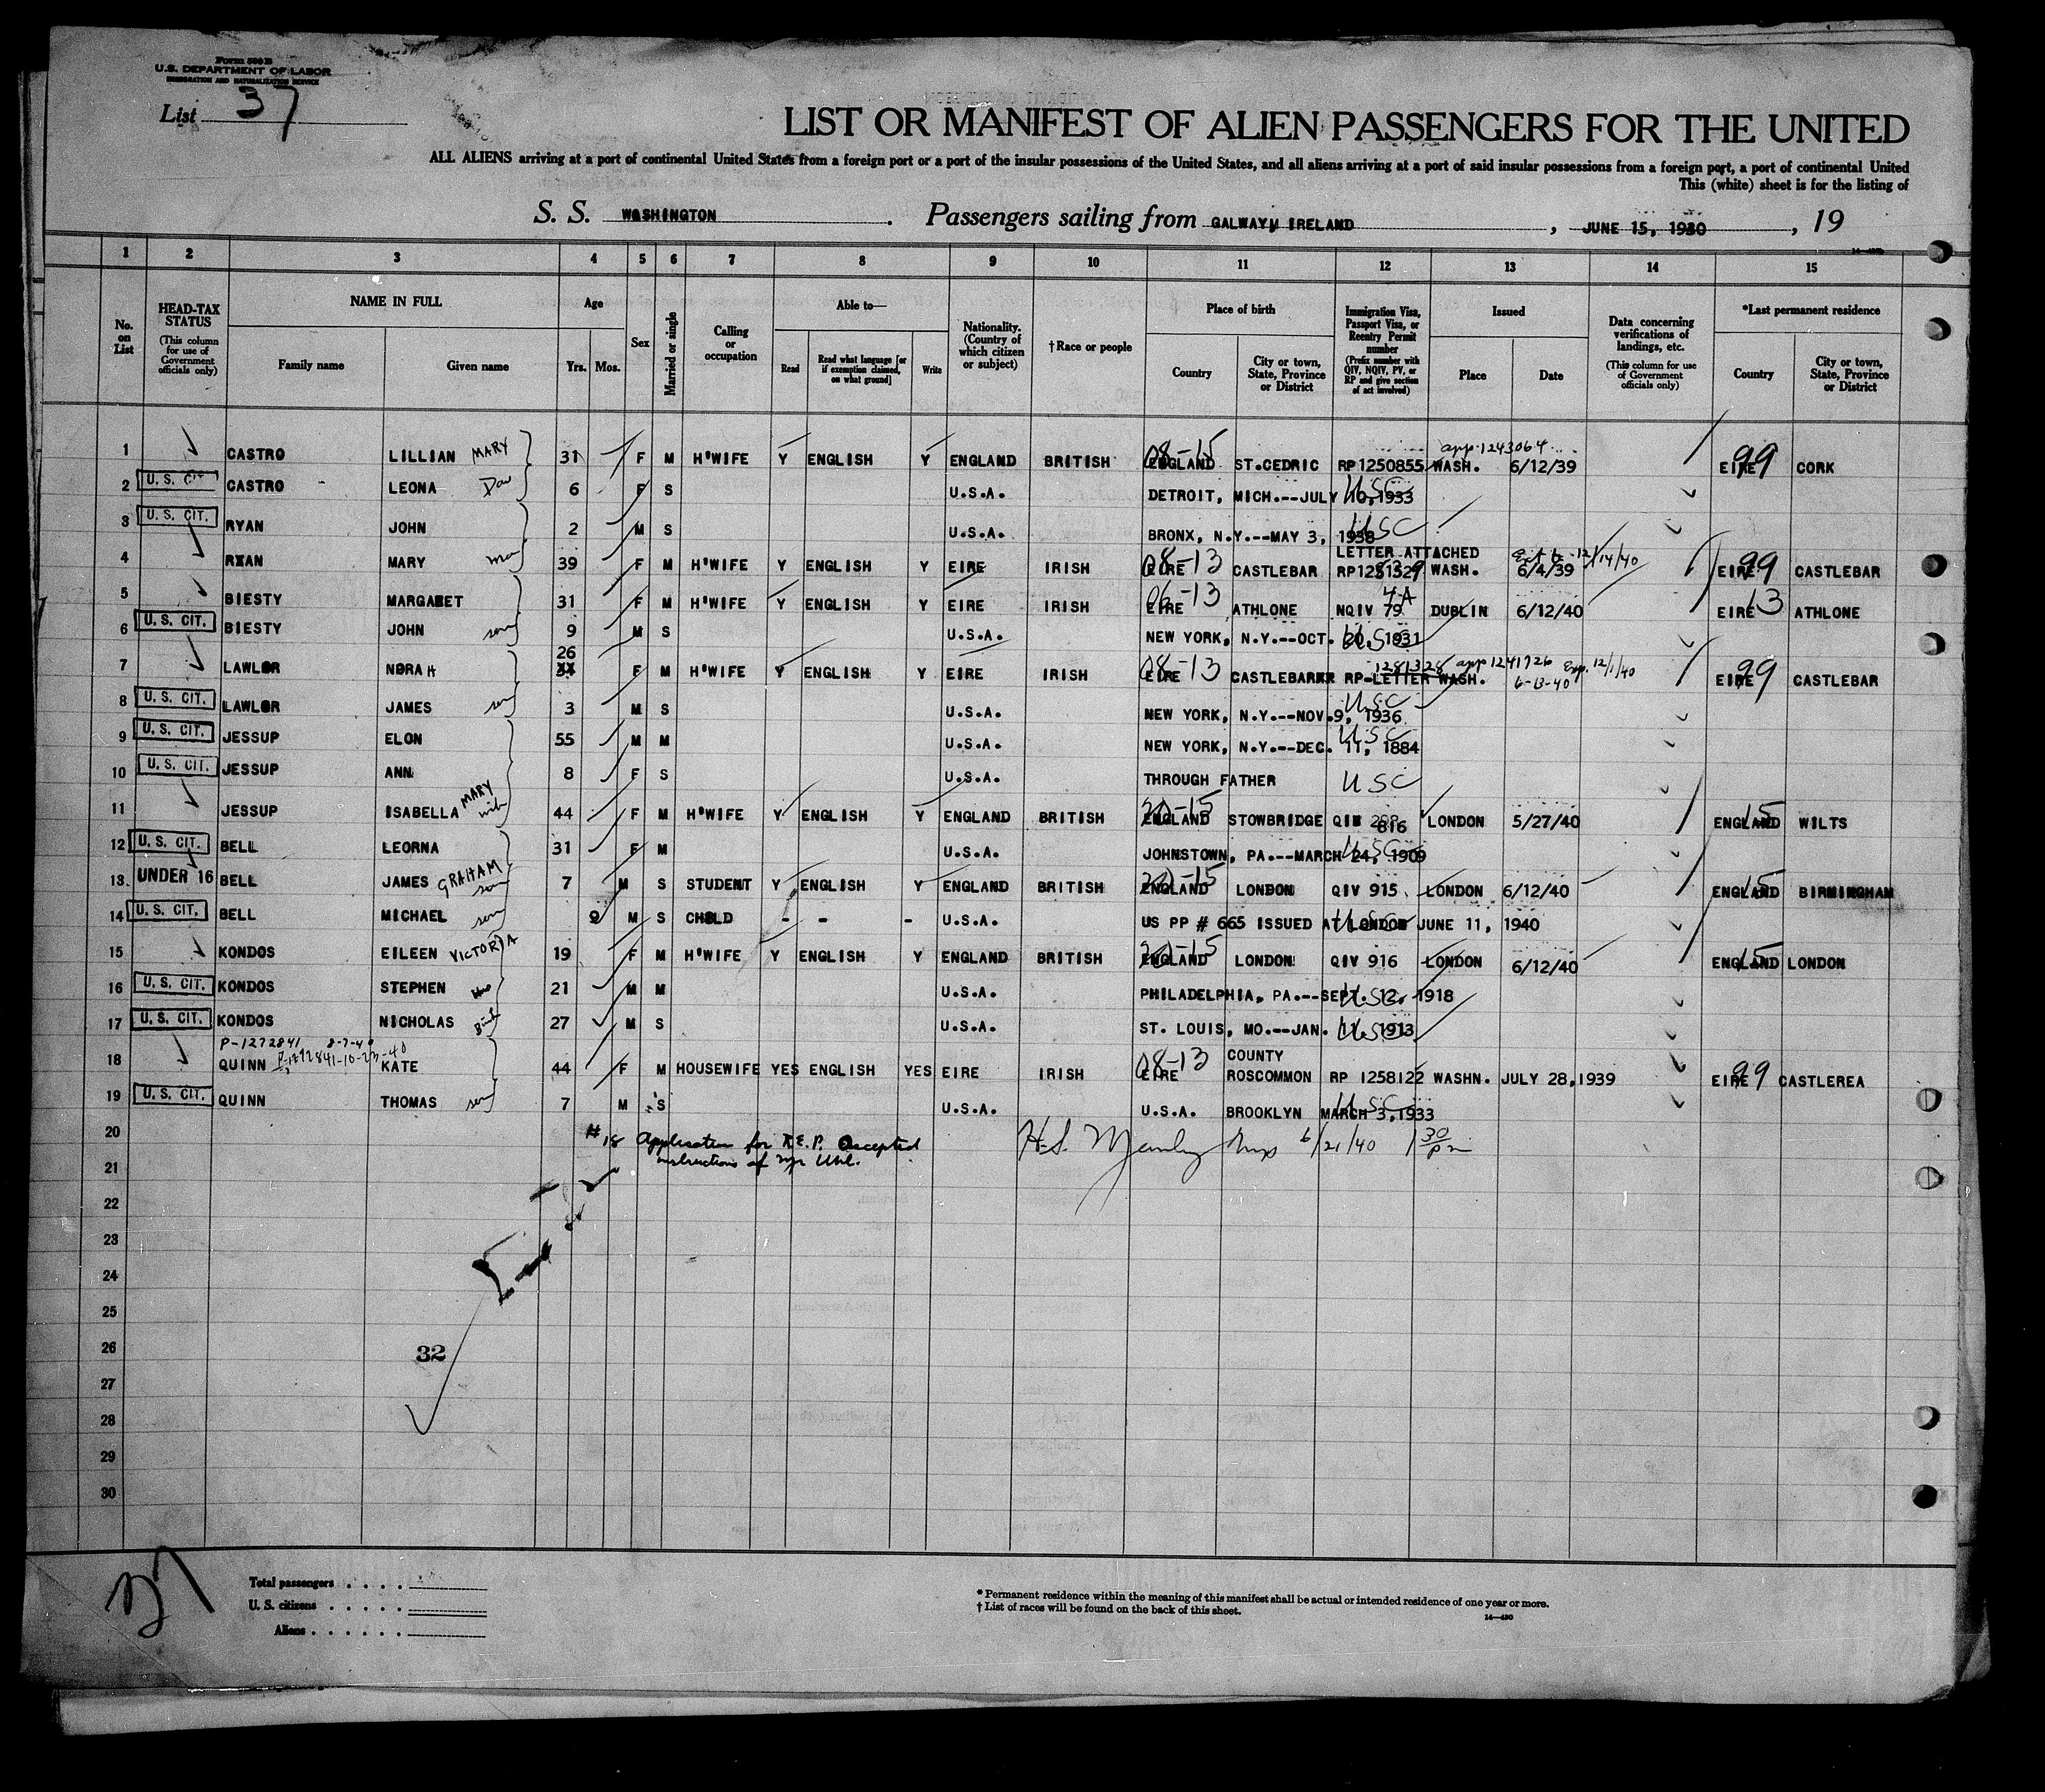 Form 500 B
U.S. DEPARTMENT OF LABOR
IMMIGRATION AND NATURALIZATION SERVICE
List 37
LIST OR MANIFEST OF ALIEN PASSENGERS FOR THE UNITED
ALL ALIENS arriving at a port of continental United States from a foreign port or a port of the insular possessions of the United States, and all aliens arriving at a port of said insular possessions from a foreign port, a port of continental United
This (white) sheet is for the listing of
S. S. WASHINGTON. Passengers sailing from GALWAY, IRELAND, JUNE 15, 1940, 19
1 2 3 4 5 6 7 8 9 10 11 12 13 14 15
No. on List
HEAD-TAX STATUS (This column for use of Government officials only)
NAME IN FULL Family name Given name
Age Yrs. Mos.
Sex
Married or single
Calling or occupation
Able to— Read Read what language [or if exemption claimed, on what ground] Write
Nationality. (Country of which citizen or subject)
†Race or people
Place of birth Country City or town, State, Province or District
Immigration Visa, Passport Visa, or Reentry Permit number (Prefix number with QIV, NQIV, PV, or RP and give section of act involved)
Issued Place Date
Data concerning verifications of landings, etc. (This column for use of Government officials only)
*Last permanent residence Country City or town, State, Province or District
app. 1243064
1 CASTRO LILLIAN MARY 31 F M H'WIFE Y ENGLISH Y ENGLAND BRITISH 08-15 ENGLAND ST.CEDRIC RP 1250855 WASH. 6/12/39 EIRE 99 CORK
2 U. S. CIT. CASTRO LEONA Dau 6 F S U.S.A. DETROIT, MICH.--JULY 10, 1933 USC
3 U. S. CIT. RYAN JOHN 2 M S U.S.A. BRONX, N.Y.--MAY 3, 1938 USC
LETTER ATTACHED
4 RYAN MARY 39 F M H'WIFE Y ENGLISH Y EIRE IRISH 08-13 EIRE CASTLEBAR RP1251329 WASH. 6/4/39 12/14/40 EIRE 99 CASTLEBAR
5 BIESTY MARGARET 31 F M H'WIFE Y ENGLISH Y EIRE IRISH 06-13 EIRE ATHLONE NQIV 79 4A DUBLIN 6/12/40 EIRE 13 ATHLONE
6 U. S. CIT. BIESTY JOHN son 9 M S U.S.A. NEW YORK, N.Y.--OCT. 20, 1931 USC
26
7 LAWLOR NORAH XX F M H'WIFE Y ENGLISH Y EIRE IRISH 08-13 EIRE CASTLEBAR RP-LETTER 1281328 WASH. app 1241726 Exp. 12/1/40 6-13-40 EIRE 99 CASTLEBAR
8 U. S. CIT. LAWLOR JAMES son 3 M S U.S.A. NEW YORK, N.Y.--NOV.9, 1936 USC
9 U. S. CIT. JESSUP ELON 55 M M U.S.A. NEW YORK, N.Y.--DEC. 11, 1884 USC
10 U. S. CIT. JESSUP ANN 8 F S U.S.A. THROUGH FATHER USC
11 JESSUP ISABELLA MARY wife 44 F M H'WIFE Y ENGLISH Y ENGLAND BRITISH 20-15 ENGLAND STOWBRIDGE 816 LONDON 5/27/40 ENGLAND 15 WILTS
12 U. S. CIT. BELL LEORNA 31 F M U.S.A. JOHNSTOWN, PA.--MARCH 24, 1909 USC
13 UNDER 16 BELL JAMES GRAHAM son 7 M S STUDENT Y ENGLISH Y ENGLAND BRITISH 20-15 ENGLAND LONDON QIV 915 LONDON 6/12/40 ENGLAND 15 BIRMINGHAM
14 U. S. CIT. BELL MICHAEL son 9 M S CHILD - - - U.S.A. US PP # 665 ISSUED AT LONDON JUNE 11, 1940 USC
15 KONDOS EILEEN VICTORIA 19 F M H'WIFE Y ENGLISH Y ENGLAND BRITISH 20-15 ENGLAND LONDON QIV 916 LONDON 6/12/40 ENGLAND 15 LONDON
16 U. S. CIT. KONDOS STEPHEN 21 M M U.S.A. PHILADELPHIA, PA.--SEPT. 12, 1918 USC
17 U. S. CIT. KONDOS NICHOLAS 27 M S U.S.A. ST. LOUIS, MO.--JAN. 11, 1913 USC
P-1272841 8-7-40
18 QUINN KATE 44 F M HOUSEWIFE YES ENGLISH YES EIRE IRISH 08-13 EIRE COUNTY ROSCOMMON RP 1258122 WASHN. JULY 28,1939 EIRE 99 CASTLEREA
19 U. S. CIT. QUINN THOMAS son 7 M S U.S.A. U.S.A. BROOKLYN MARCH 3,1933 USC
20 #18 Application for R.E.P. accepted 6/21/40 1 30 pm
21 instructions of Mr Uhl.
22
23
24
25
26 32
27
28
29
30
Total passengers . . . .
U. S. citizens . . . . .
Aliens . . . . . .
* Permanent residence within the meaning of this manifest shall be actual or intended residence of one year or more.
† List of races will be found on the back of this sheet.
14—430